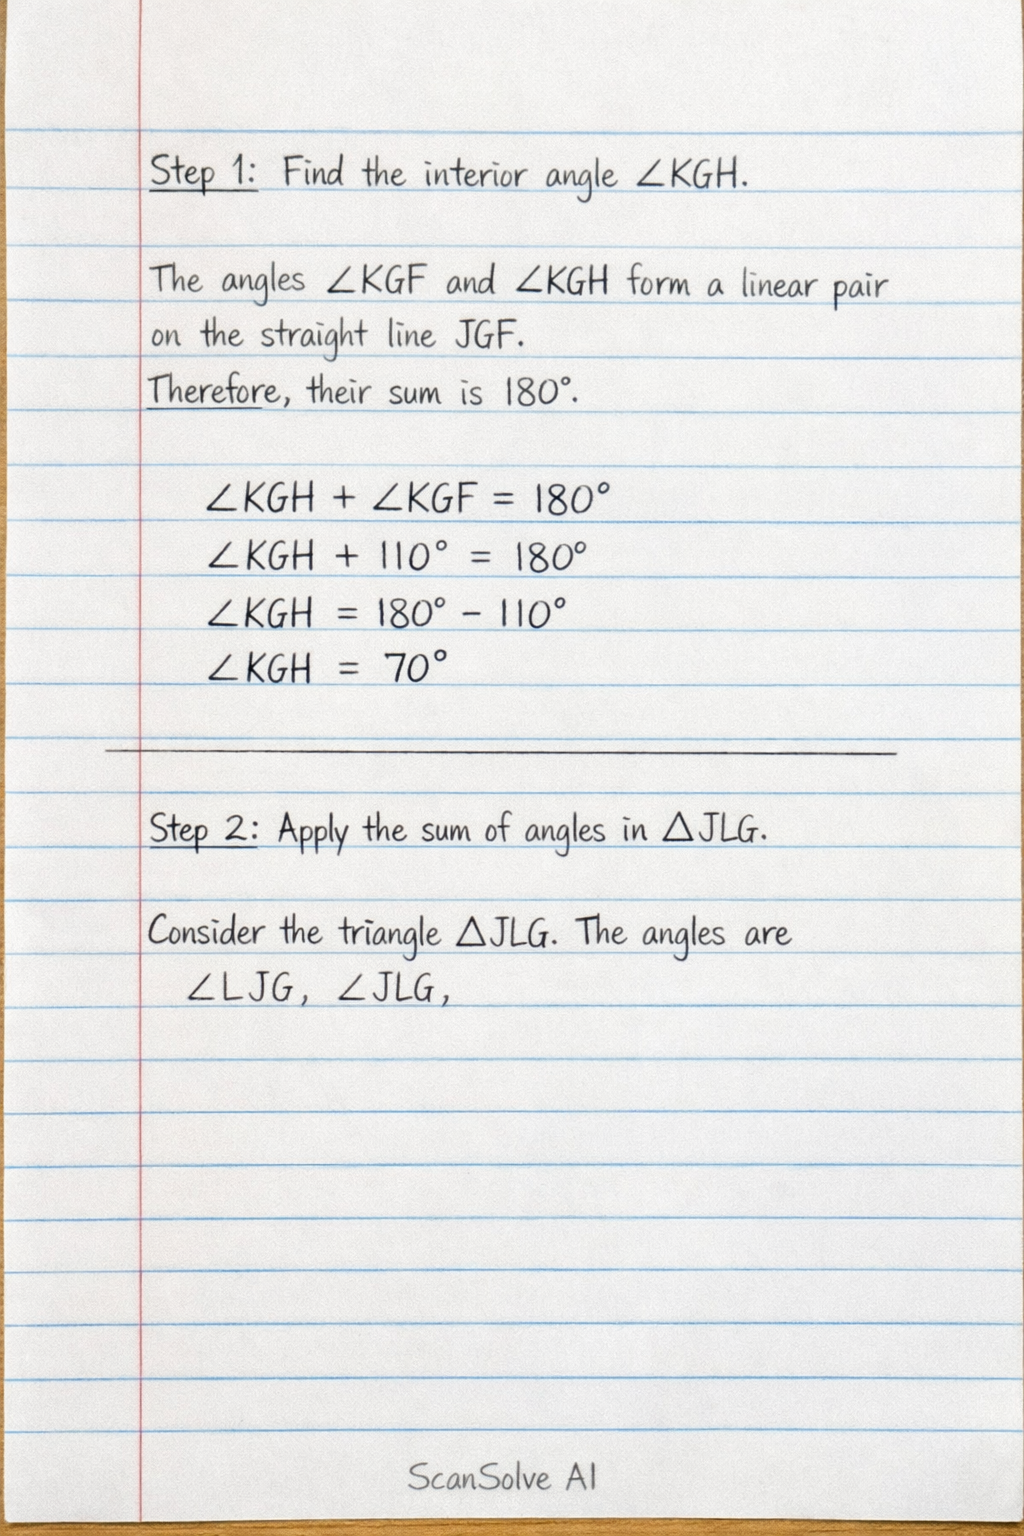 Step 1: Find the interior angle ∠KGH.
The angles ∠KGF and ∠KGH form a linear pair
on the straight line JGF.
Therefore, their sum is 180°.
∠KGH + ∠KGF = 180°
∠KGH + 110° = 180°
∠KGH = 180° - 110°
∠KGH = 70°
Step 2: Apply the sum of angles in △JLG.
Consider the triangle △JLG. The angles are
∠LJG, ∠JLG,
ScanSolve AI